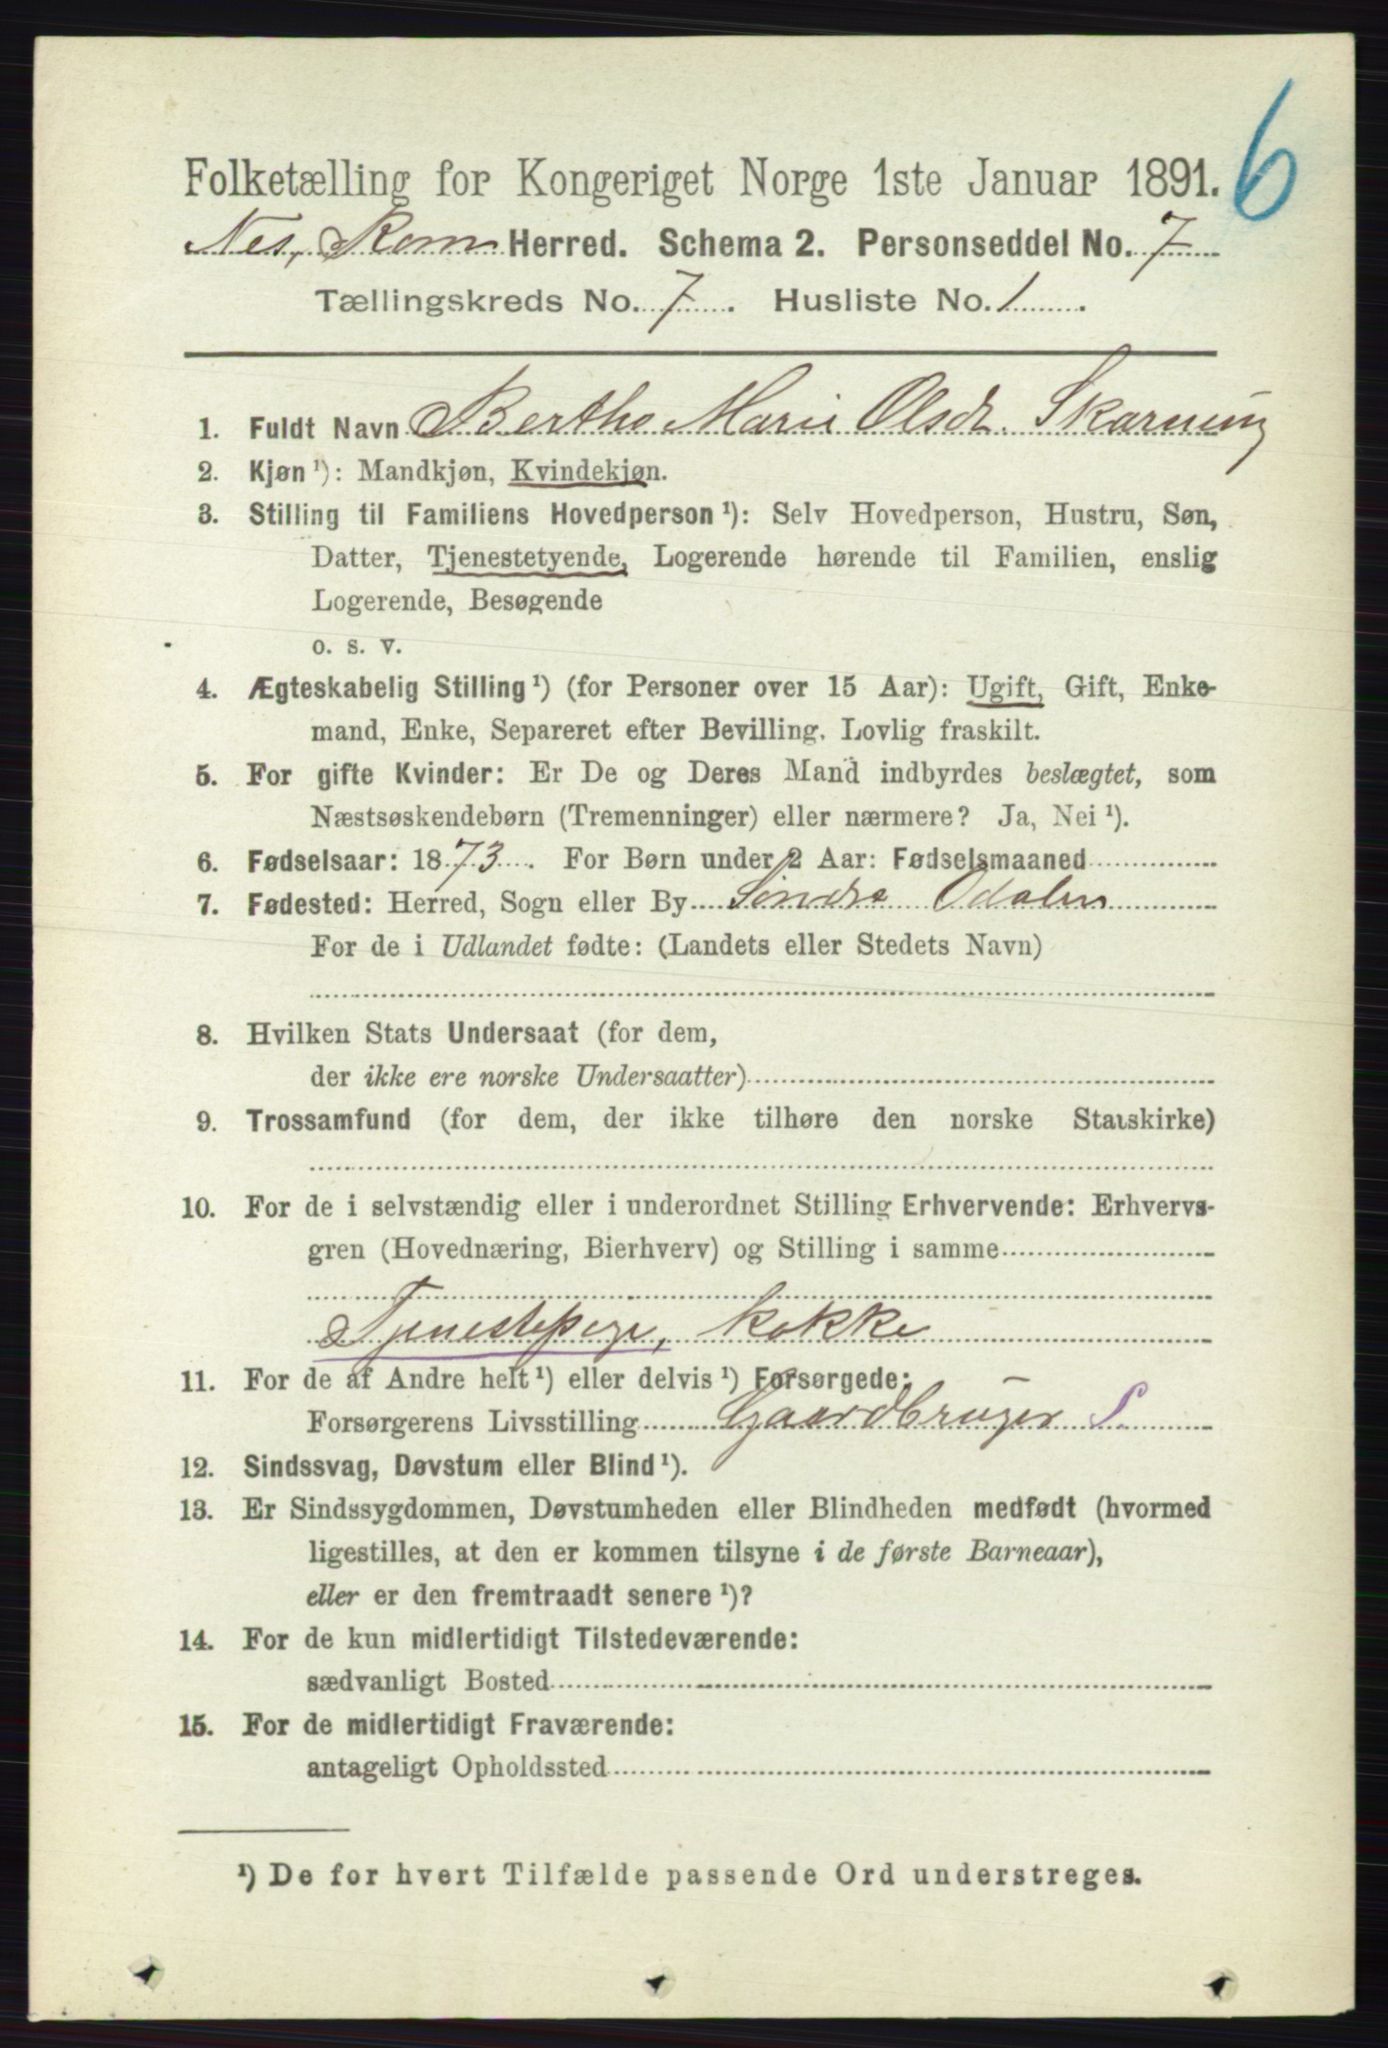 6
Folketælling for Kongeriget Norge 1ste Januar 1891.
Nes, Rom Herred. Schema 2. Personseddel No. 7
Tællingskreds No. 7. Husliste No. 1.
1. Fuldt Navn Bertha Marie Olsdt. Skarning
2. Kjøn ¹): Mandkjøn, Kvindekjøn.
3. Stilling til Familiens Hovedperson ¹): Selv Hovedperson, Hustru, Søn,
Datter, Tjenestetyende, Logerende hørende til Familien, enslig
Logerende, Besøgende
o. s. v.
4. Ægteskabelig Stilling ¹) (for Personer over 15 Aar): Ugift, Gift, Enke-
mand, Enke, Separeret efter Bevilling. Lovlig fraskilt.
5. For gifte Kvinder: Er De og Deres Mand indbyrdes beslægtet, som
Næstsøskendebørn (Tremenninger) eller nærmere? Ja, Nei ¹).
6. Fødselsaar: 1873. For Børn under 2 Aar: Fødselsmaaned
7. Fødested: Herred, Sogn eller By Søndre Odalen
For de i Udlandet fødte: (Landets eller Stedets Navn)
8. Hvilken Stats Undersaat (for dem,
der ikke ere norske Undersaatter)
9. Trossamfund (for dem, der ikke tilhøre den norske Statskirke)
10. For de i selvstændig eller i underordnet Stilling Erhvervende: Erhvervs-
gren (Hovednæring, Bierhverv) og Stilling i samme
Tjenestepige, kokke
11. For de af Andre helt ¹) eller delvis ¹) Forsørgede:
Forsørgerens Livsstilling Gaardbruger S.
12. Sindssvag, Døvstum eller Blind ¹).
13. Er Sindssygdommen, Døvstumheden eller Blindheden medfødt (hvormed
ligestilles, at den er kommen tilsyne i de første Barneaar),
eller er den fremtraadt senere ¹)?
14. For de kun midlertidigt Tilstedeværende:
sædvanligt Bosted
15. For de midlertidigt Fraværende:
antageligt Opholdssted
¹) De for hvert Tilfælde passende Ord understreges.